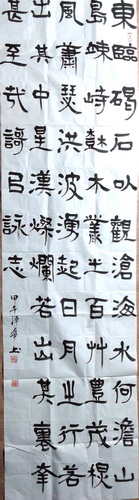 東臨碣石以觀滄海水何澹山
島竦峙樹木叢生百艸豐茂
風蕭瑟洪波湧起日月之行若
出其中星漢燦爛若出其裏幸
甚至哉謌以詠志
甲午